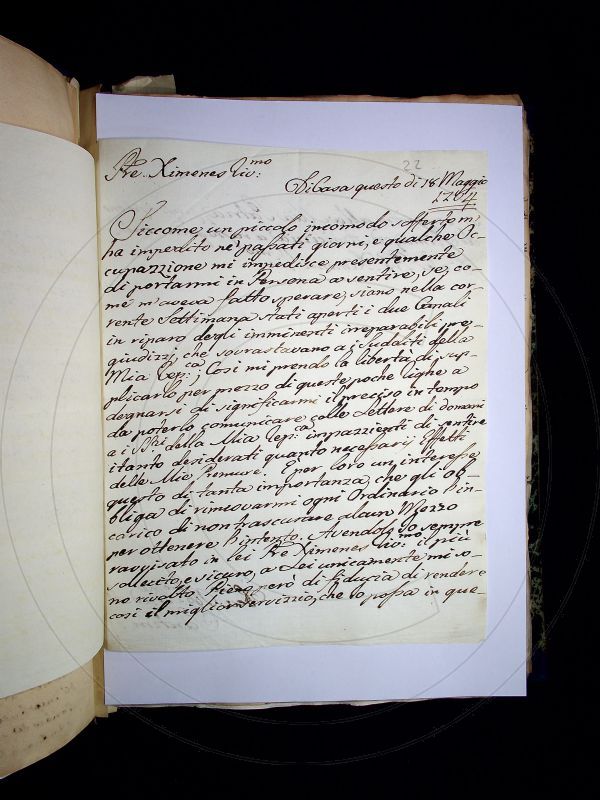 22
Pre. Ximenes Riv:mo
Di Casa questo di 18 Maggio
1764
Siccome, un piccolo incomodo sofferto m'
ha impedito ne' passati giorni, e qualche Oc-
cupazzione mi impedisce presentemente
di portarmi in Persona a sentire, se, co-
me m'aveva fatto sperare, siano nella cor-
rente Settimana stati aperti i due Canali
in riparo degli imminenti irreparabili pre-
giudizj, che sovrastavano a' Sudditi della
Mia Rep:ca; Così mi prendo la libertà di sup-
plicarlo per mezzo di queste poche righe a
degnarsi di significarmi il preciso in tempo
da poterlo comunicare colle Lettere di domani
a i SSri della Mia Rep:ca impazzienti di sentire
i tanto desiderati quanto necessarj Effetti
delle Mie Premure. È per loro un interesse
questo di tanta importanza, che gli ob-
bliga di rinnovarmi ogni Ordinario l'in-
carico di non trascurare alcun Mezzo
per ottenere l'intento. Avendolo Io sempre
ravvisato in Lei Pre Ximenes Riv:mo il più
sollecito, e sicuro, a Lei unicamente mi so-
no rivolto. Pieno però di fiducia di rendere
così il miglior servizzio, che lo possa in que-